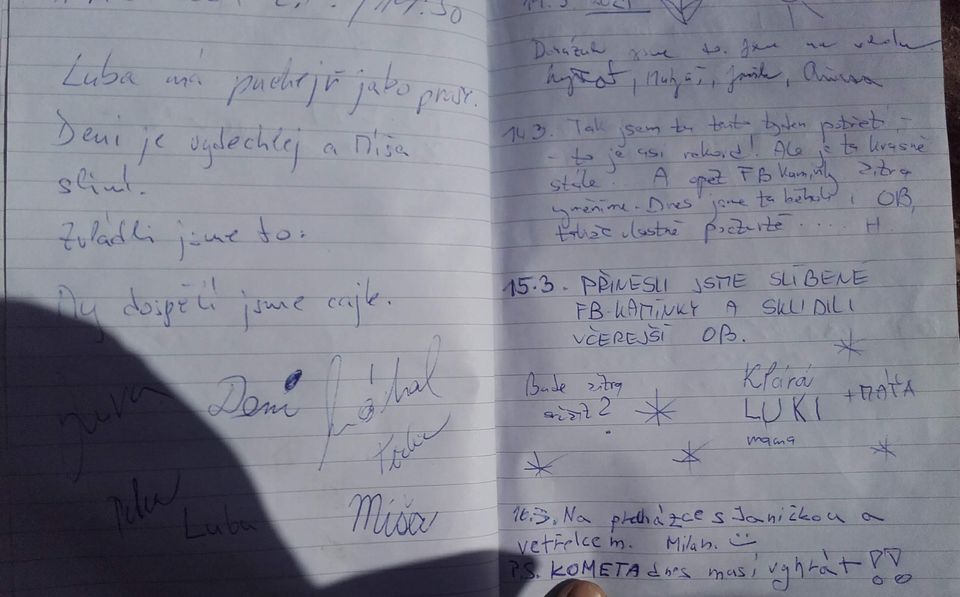 Luba má puchejř jako prase.
Deni je vydechlej a Míša
slint.
Zvládli jsme to.
My dospělí jsme cajk.
Deni
Luba Míša
14.3. 2021
Dokázali jsme to. Jsme na vrcholu
Kryštof, Matyáš,
14.3. Tak jsem tu tento týden potřetí -
- to je asi rekord! Ale je tu krásně
stále. A opět FB kamínky zítra
vyměníme. Dnes jsme tu běhali i OB,
takže vlastně počtvrté .... H.
15.3. PŘINESLI JSME SLÍBENÉ
FB-KAMÍNKY A SKLIDILI
VČEREJŠÍ OB.
Bude zítra
sníž?
Klárá
LUKI + MÁŤA
mama
16.3. Na procházce s Janičkou a
vetřelcem. Milan.
P.S. KOMETA dnes musí vyhrát !!